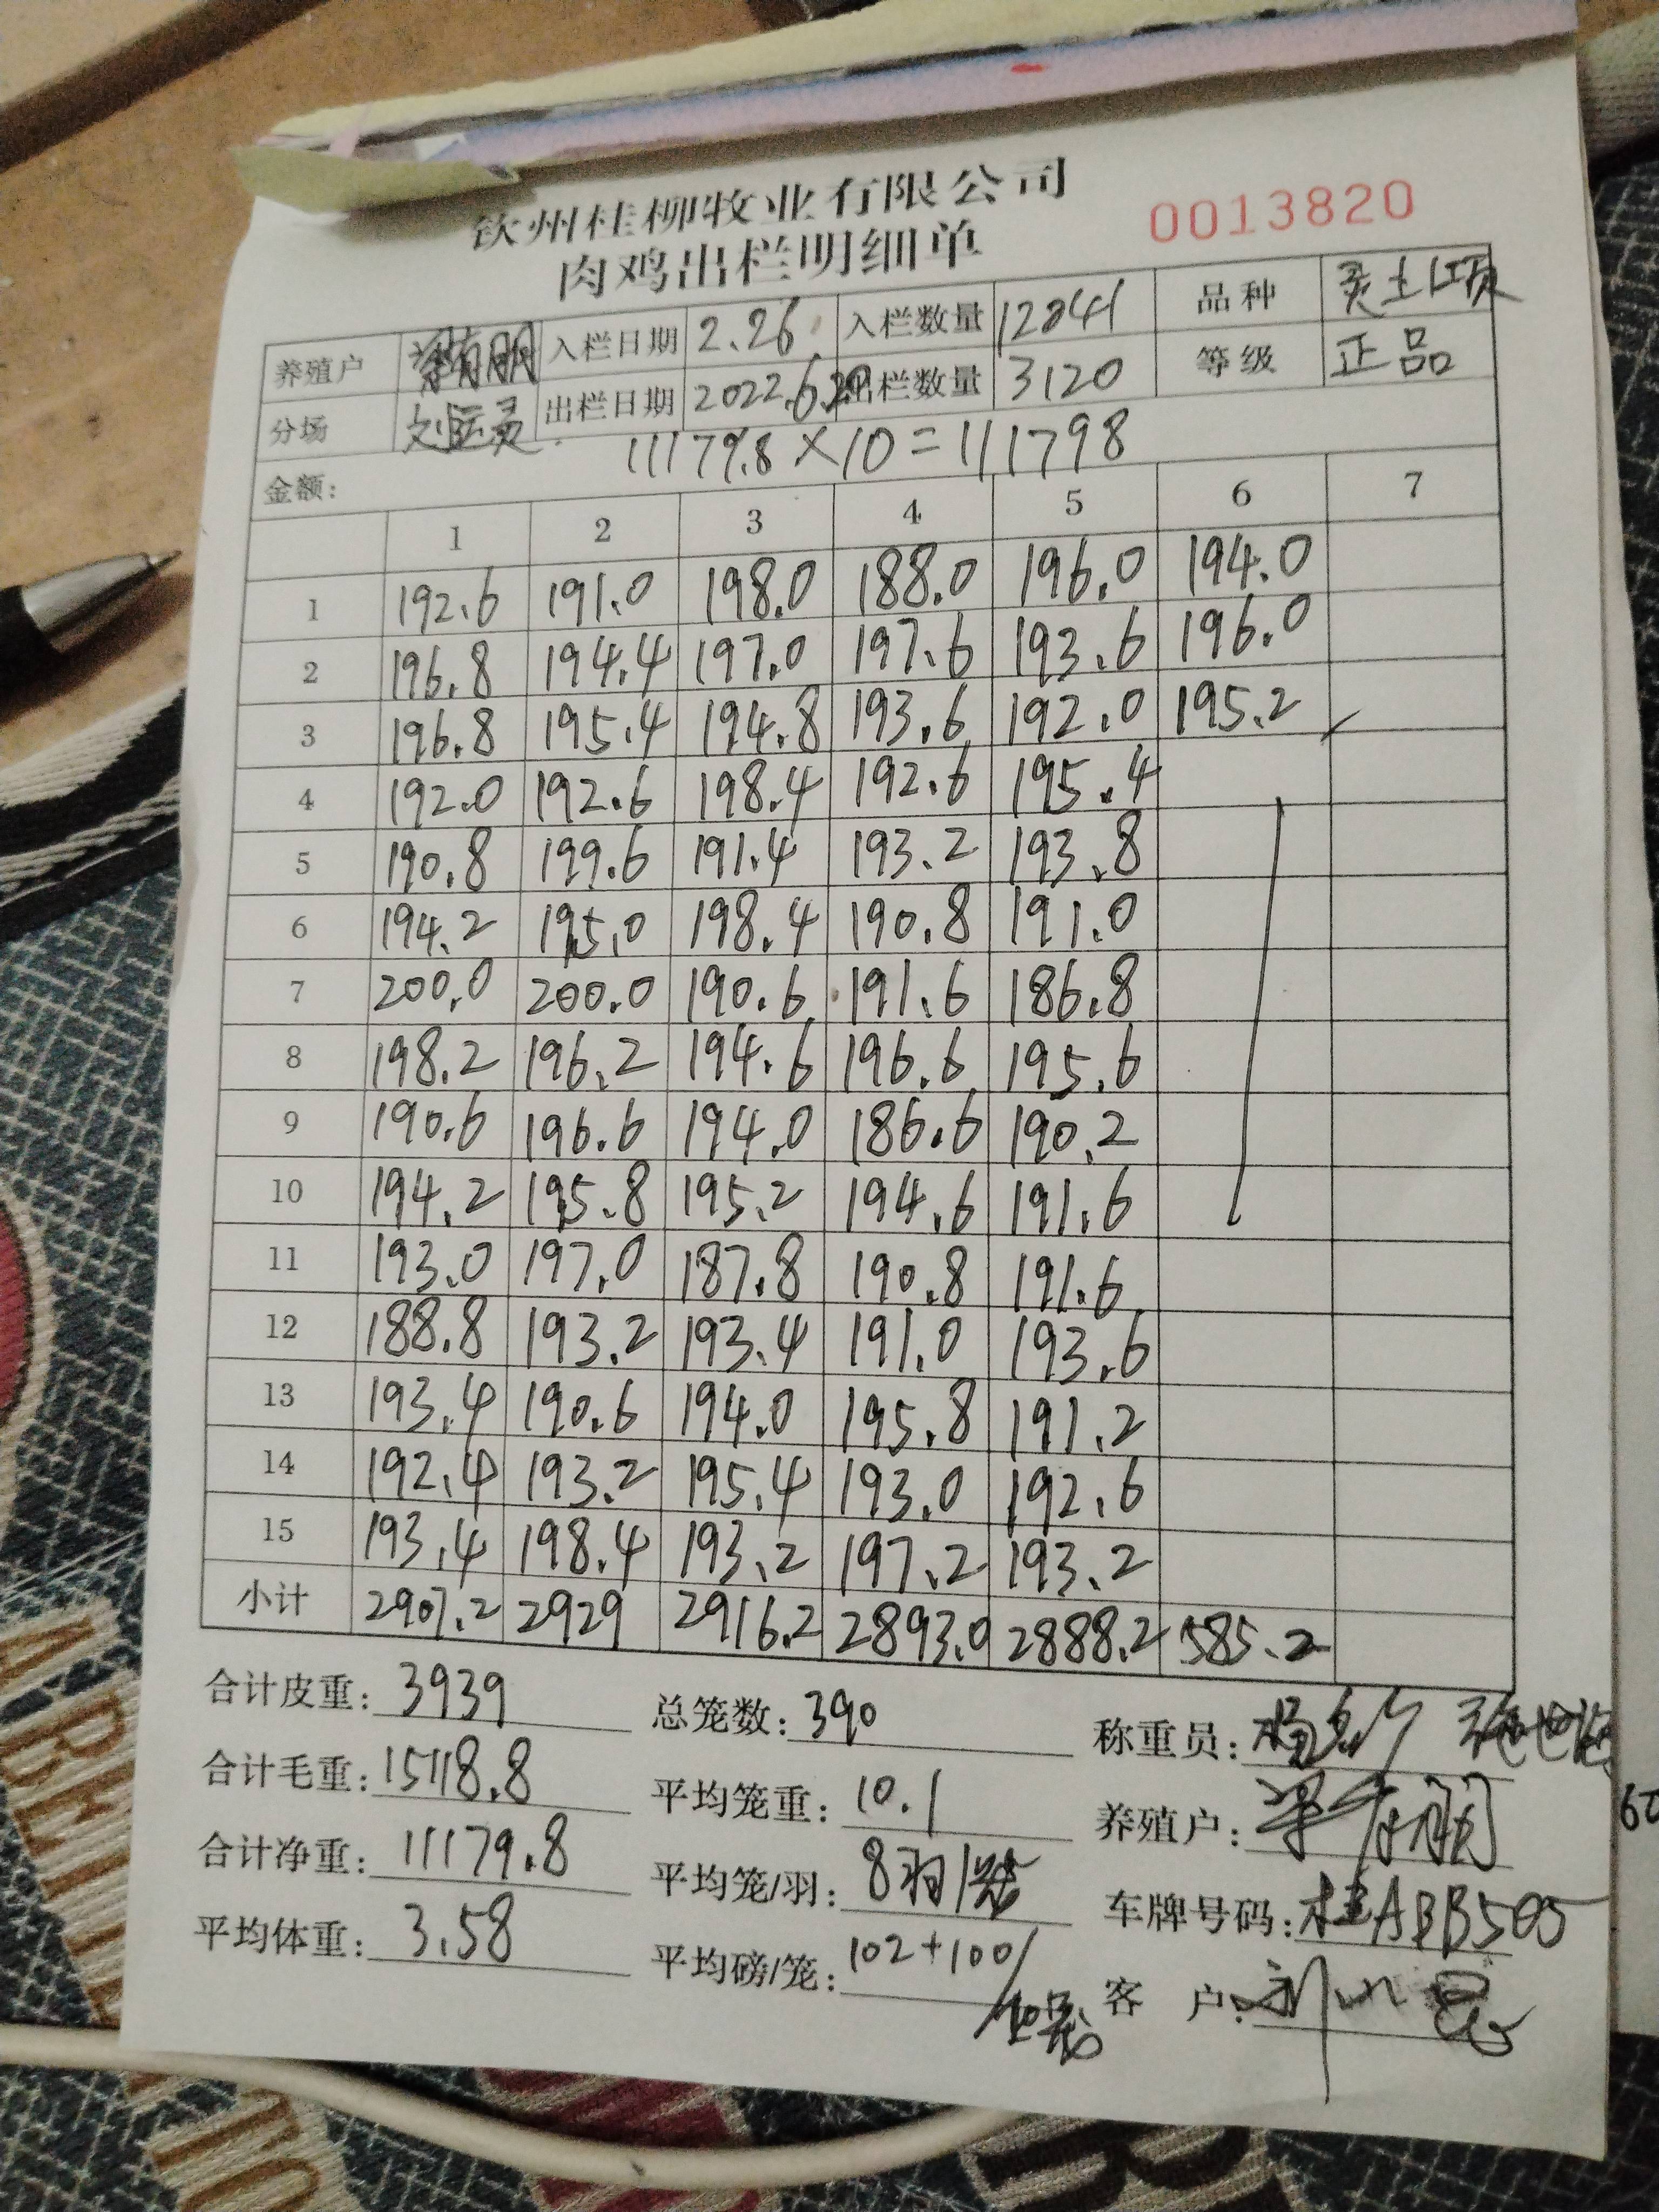 钦州桂柳牧业有限公司
肉鸡出栏明细单 0013820
养殖户 入栏日期 2.26 入栏数量 12841 品种 灵土项
分场 出栏日期 2022.6.20 出栏数量 3120 等级 正品
金额: 11179.8×10=111798
1 2 3 4 5 6 7
1 192.6 191.0 198.0 188.0 196.0 194.0
2 196.8 194.4 197.0 197.6 193.6 196.0
3 196.8 195.4 194.8 193.6 192.0 195.2
4 192.0 192.6 198.4 192.6 195.4
5 190.8 199.6 191.4 193.2 193.8
6 194.2 195.0 198.4 190.8 191.0
7 200.0 200.0 190.6 191.6 186.8
8 198.2 196.2 194.6 196.6 195.6
9 190.6 196.6 194.0 186.6 190.2
10 194.2 195.8 195.2 194.6 191.6
11 193.0 197.0 187.8 190.8 191.6
12 188.8 193.2 193.4 191.0 193.6
13 193.4 190.6 194.0 195.8 191.2
14 192.4 193.2 195.4 193.0 192.6
15 193.4 198.4 193.2 197.2 193.2
小计 2907.2 2929 2916.2 2893.0 2888.2 585.2
合计皮重: 3939 总笼数: 390 称重员:
合计毛重: 15118.8 平均笼重: 10.1 养殖户:
合计净重: 11179.8 平均笼/羽: 8羽/笼 车牌号码: 桂ABB505
平均体重: 3.58 平均磅/笼: 102+100/ 客户: